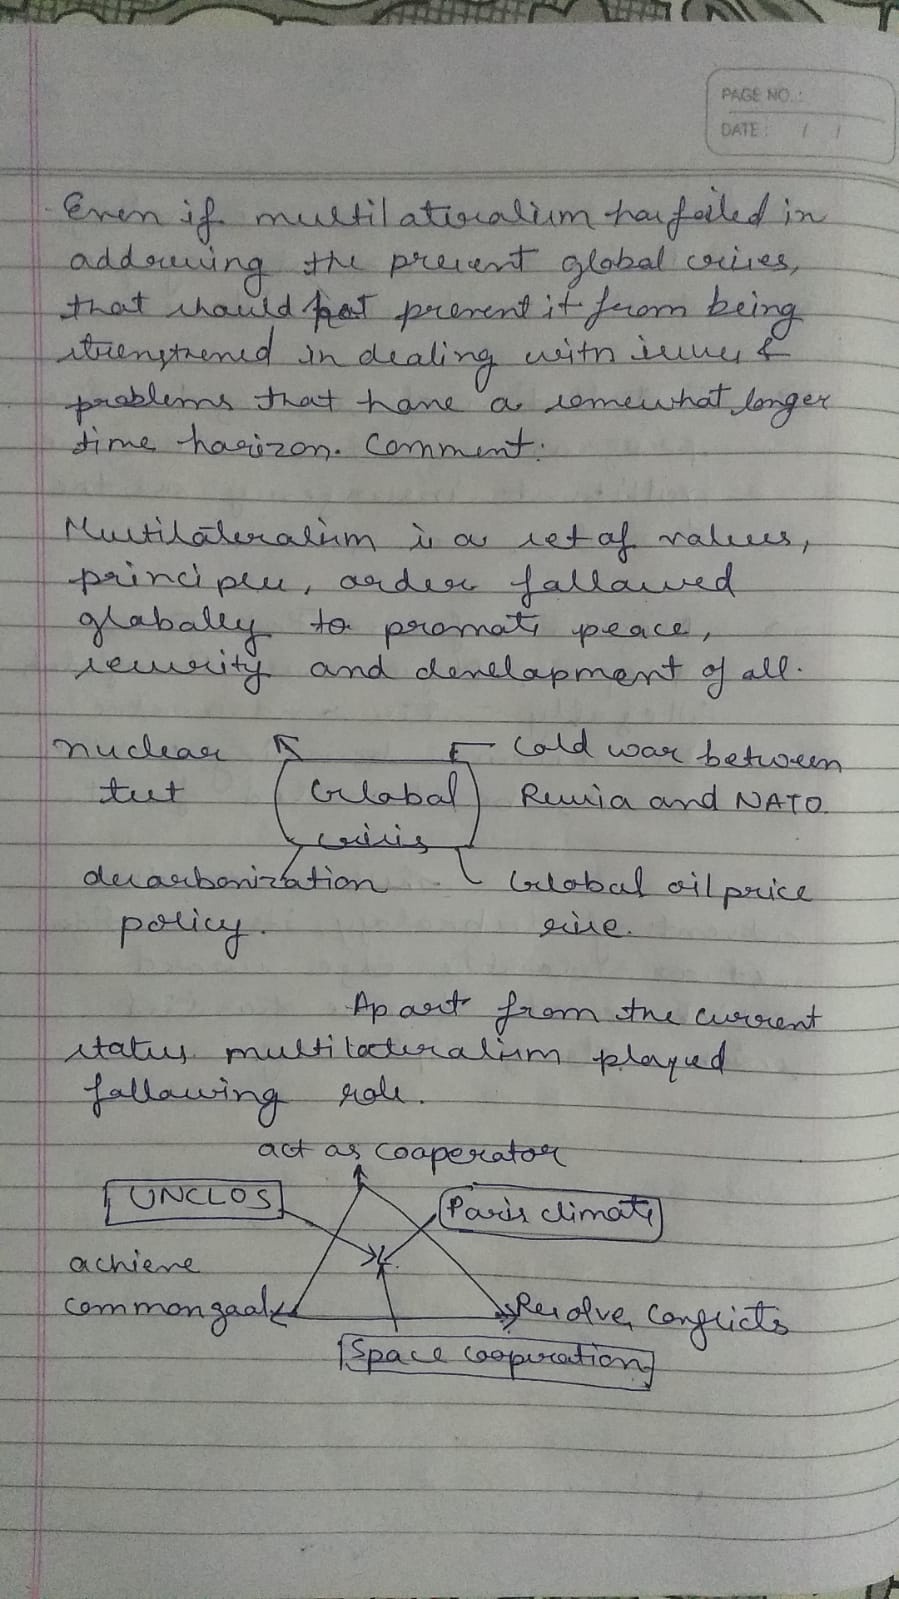 PAGE NO.:
DATE: / /
Even if multilateralism has failed in
addressing the present global crises,
that should not prevent it from being
strengthened in dealing with issues &
problems that have a somewhat longer
time horizon. Comment.
Multilateralism is a set of values,
principles, order followed
globally to promote peace,
security and development of all.
nuclear
test
Global
crisis
Cold war between
Russia and NATO.
decarbonization
policy.
Global oil price
rise.
Apart from the current
status multilateralism played
following role.
act as cooperator
UNCLOS
Paris climate
achieve
common goal
Resolve conflicts
Space cooperation